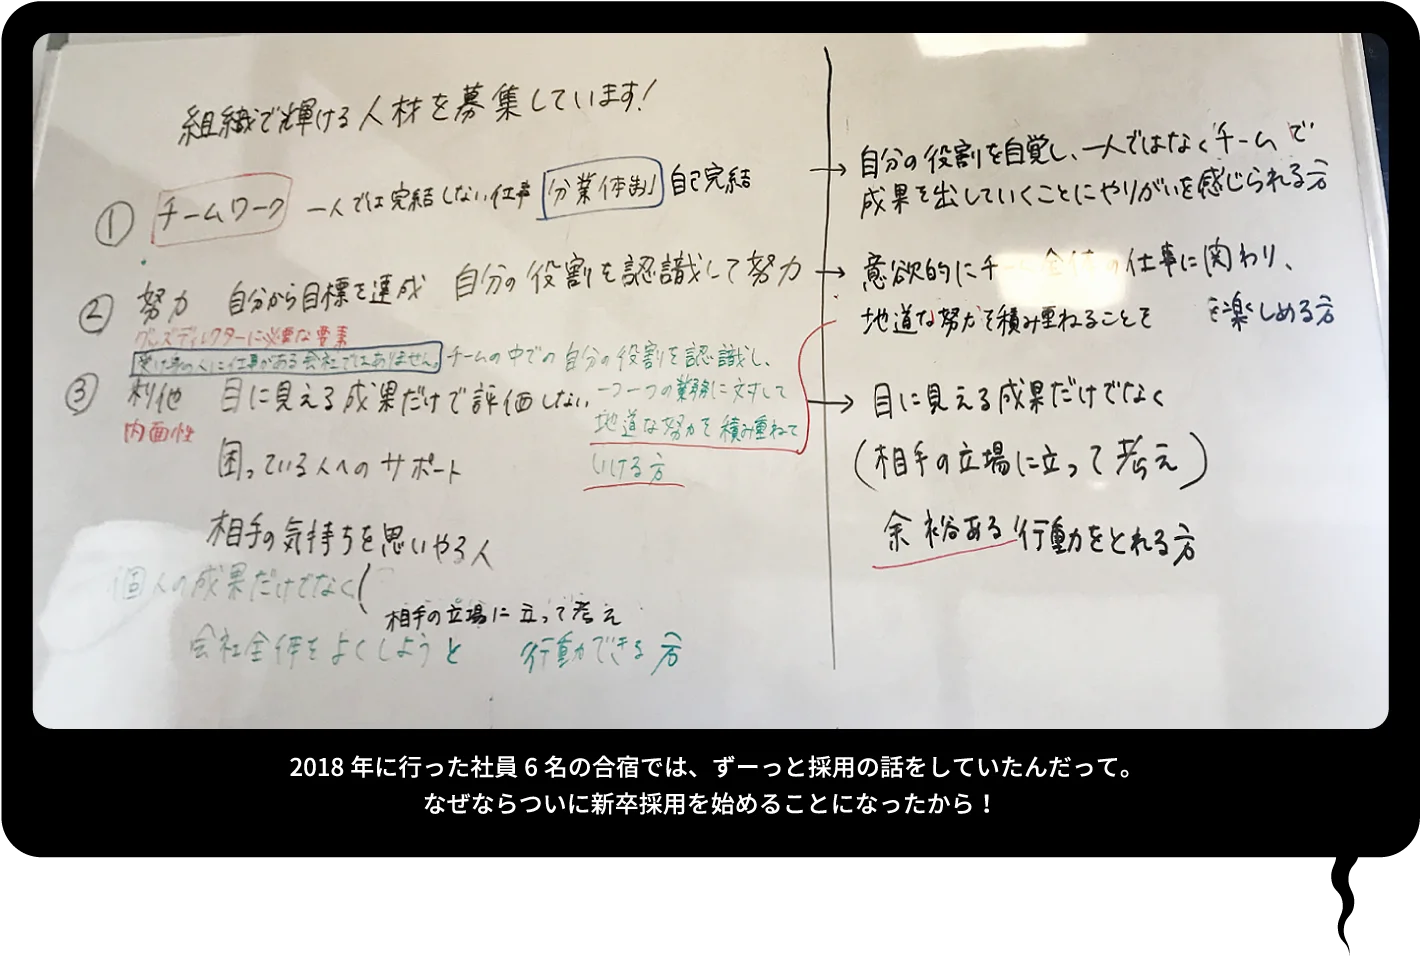 組織で輝ける人材を募集しています!
① チームワーク 一人では完結しない仕事 分業体制 自己完結
② 努力 自分から目標を達成 自分の役割を認識して努力
グッズディレクターに必要な要素
受け身の人に仕事がある会社ではありません。
チームの中での自分の役割を認識し、
一つ一つの業務に対して
地道な努力を積み重ねて
いける方
③ 利他 目に見える成果だけで評価しない
内面性
困っている人へのサポート
相手の気持ちを思いやる人
個人の成果だけでなく(
相手の立場に立って考え
会社全体をよくしようと 行動できる方
→自分の役割を自覚し、一人ではなく「チーム」で
成果を出していくことにやりがいを感じられる方
→意欲的にチーム全体の仕事に関わり、
地道な努力を積み重ねることを を楽しめる方
→目に見える成果だけでなく
(相手の立場に立って考え)
余裕ある行動をとれる方
2018年に行った社員6名の合宿では、ずーっと採用の話をしていたんだって。
なぜならついに新卒採用を始めることになったから!